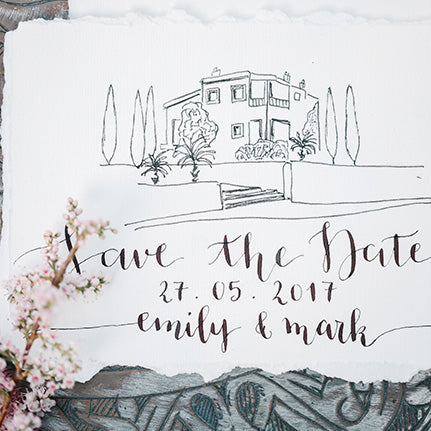 Save the Date
27.05.2017
emily & mark